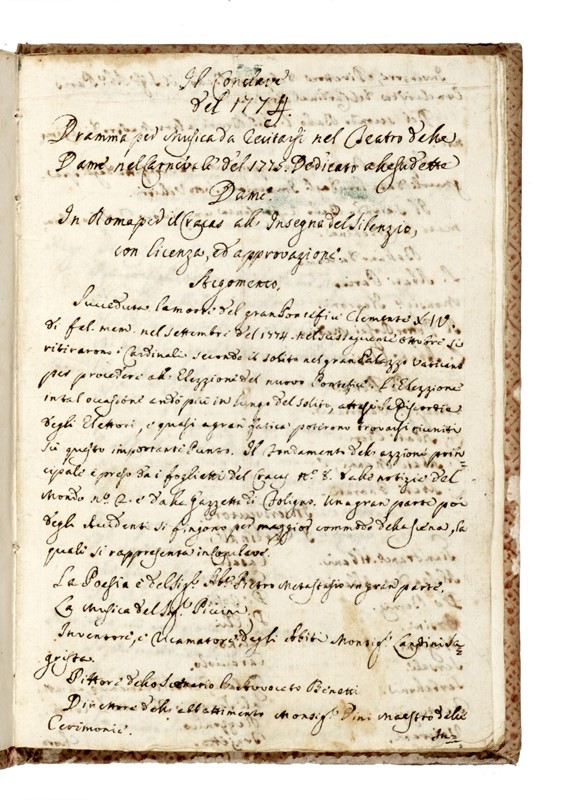 Il Conclave
del 1774.
Dramma per Musica da recitarsi nel Teatro delle
Dame nel Carnevale del 1775. Dedicato alle sudette
Dame.
In Roma per il Cracas all' Insegna del Silenzio,
con licenza, ed approvazione.
Argomento.
Succeduta la morte del gran Pontefice Clemente XIV.
di fel. mem. nel settembre del 1774. nel susseguente ottobre si
ritirarono i Cardinali secondo il solito nel gran Palazzo Vaticano
per procedere alla Elezzione del nuovo Pontefice. L'Elezzione
in tal occasione andò più in lungo del solito, attese le discordie
degli Elettori, e quasi a gran fatica poterono trovarsi riuniti
su questo importante Punto. Il fondamento dell' azzione prin=
cipale è preso da i foglietti del Cracas n.º 8. dalle notizie del
Mondo nº. 2. e dalla Gazzetta di Bologna. Una gran parte poi
degli Accidenti si fingono per maggior commodo della scena, la
quale si rappresenta in
La Poesia è del Sigr. Abb. Pietro Metastasio in gran parte.
La Musica del Sigr. Piccini.
Inventore, e Ricamatore degli Abiti Monsigr. Landini Sa=
grista.
Pittore dello Scenario Benetti
Direttore dell' abbattimento Monsigr. Dini Maestro delle
Cerimonie.
In=